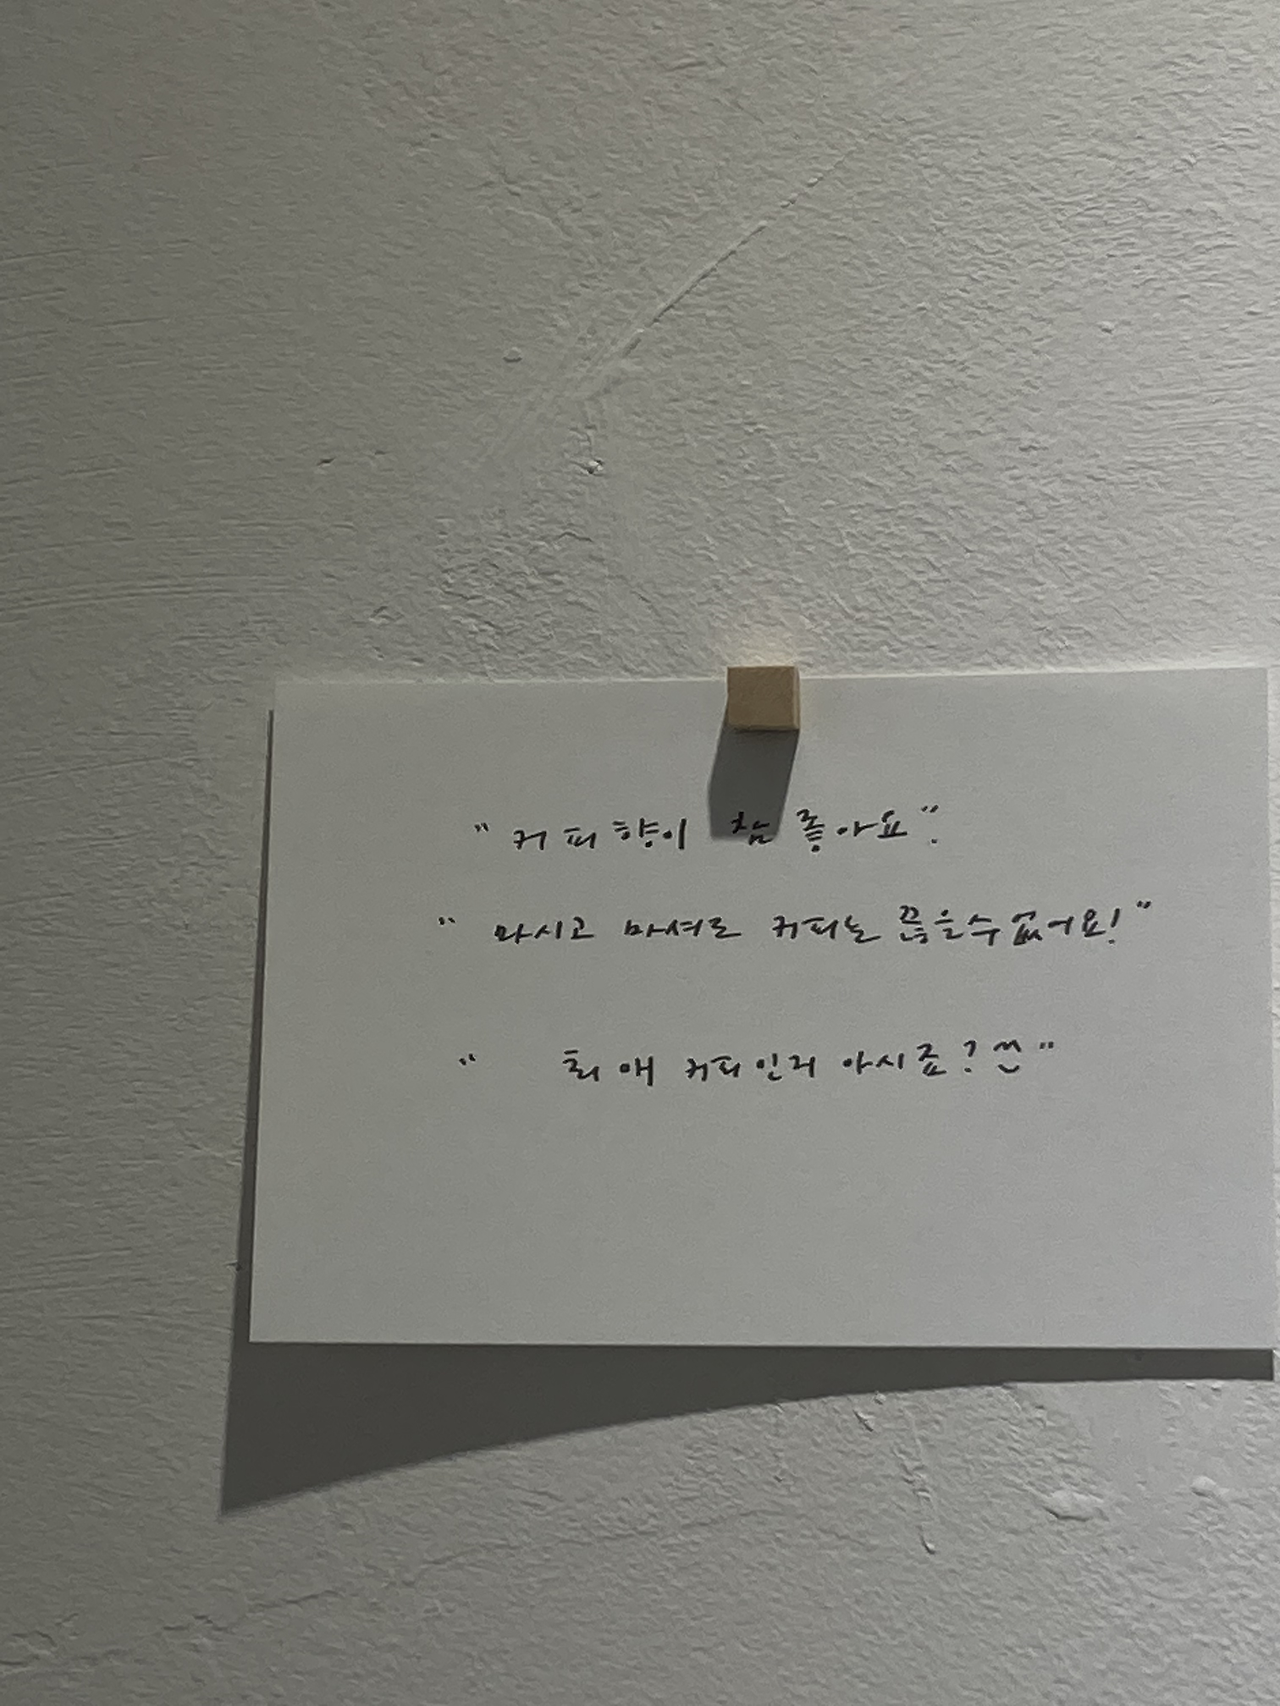 "커피향이 참 좋아요".
"마시고 마셔도 커피는 끊을수없어요!"
"최애 커피인거 아시죠?^^"